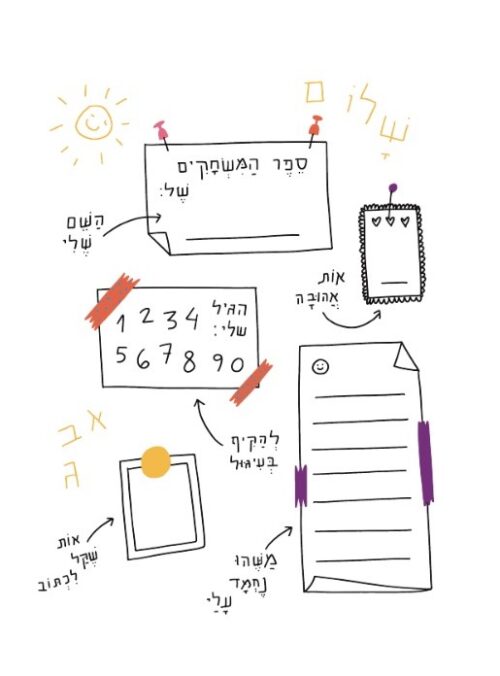 שָׁלוֹם
סֵפֶר הַמִּשְׂחָקִים
שֶׁל:
הַשֵּׁם
שֶׁלִּי
אוֹת
אֲהוּבָה
הַגִּיל
שֶׁלִּי:
1 2 3 4
5 6 7 8 9 0
לְהַקִּיף
בְּעִיגּוּל
א ב
ג
אוֹת
שֶׁקַּל
לִכְתּוֹב
מַשֶּׁהוּ
נֶחְמָד
עָלַי